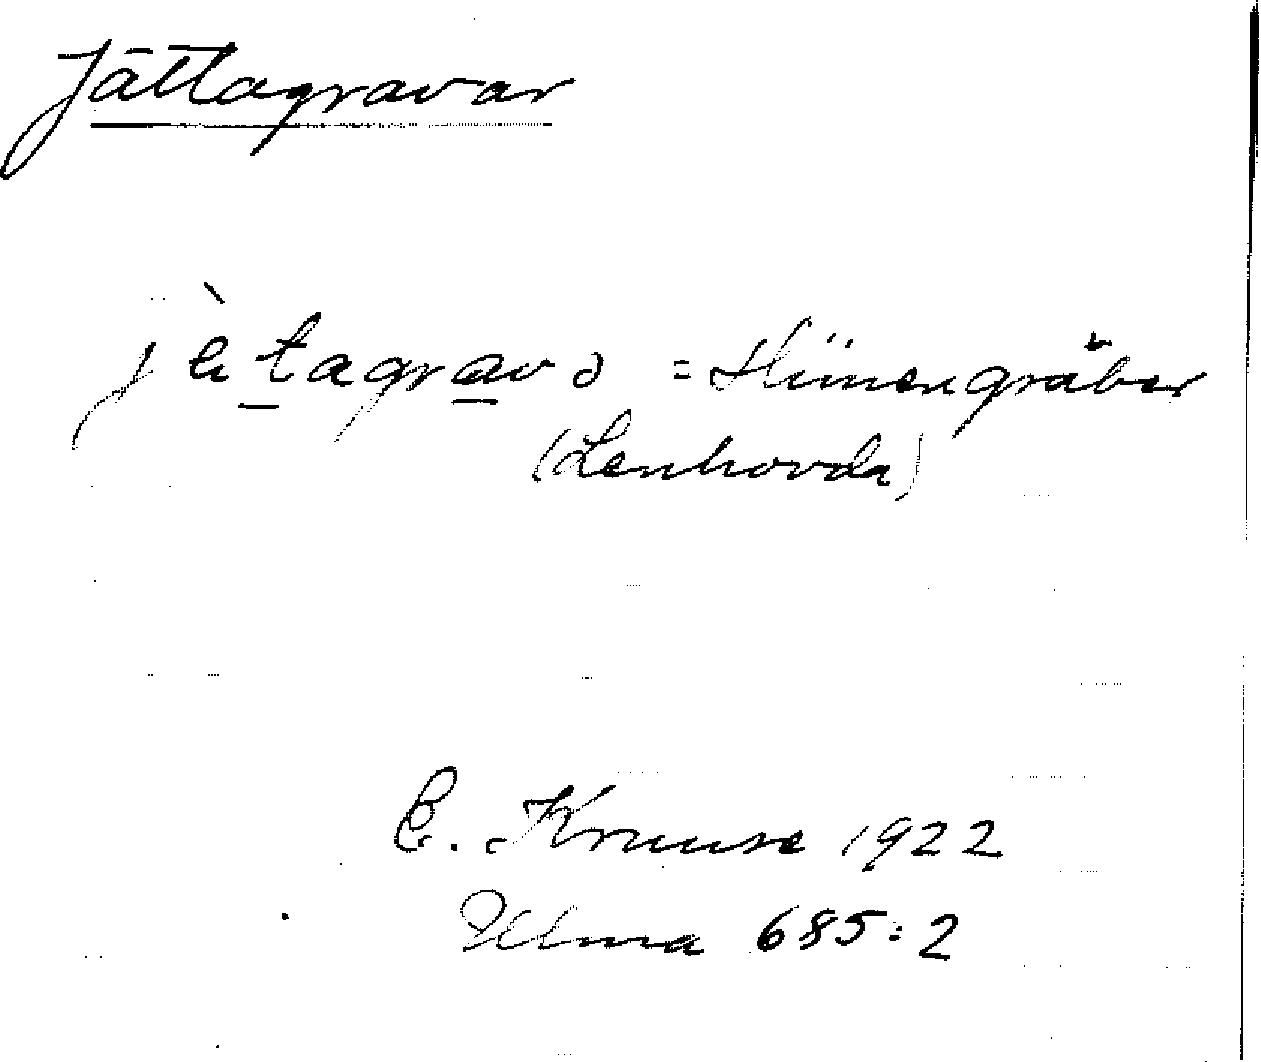 Jättagravar
jètagravə = Hünengräber
(Lenhovda)
E. Kruuse 1922
Ulma 685:2